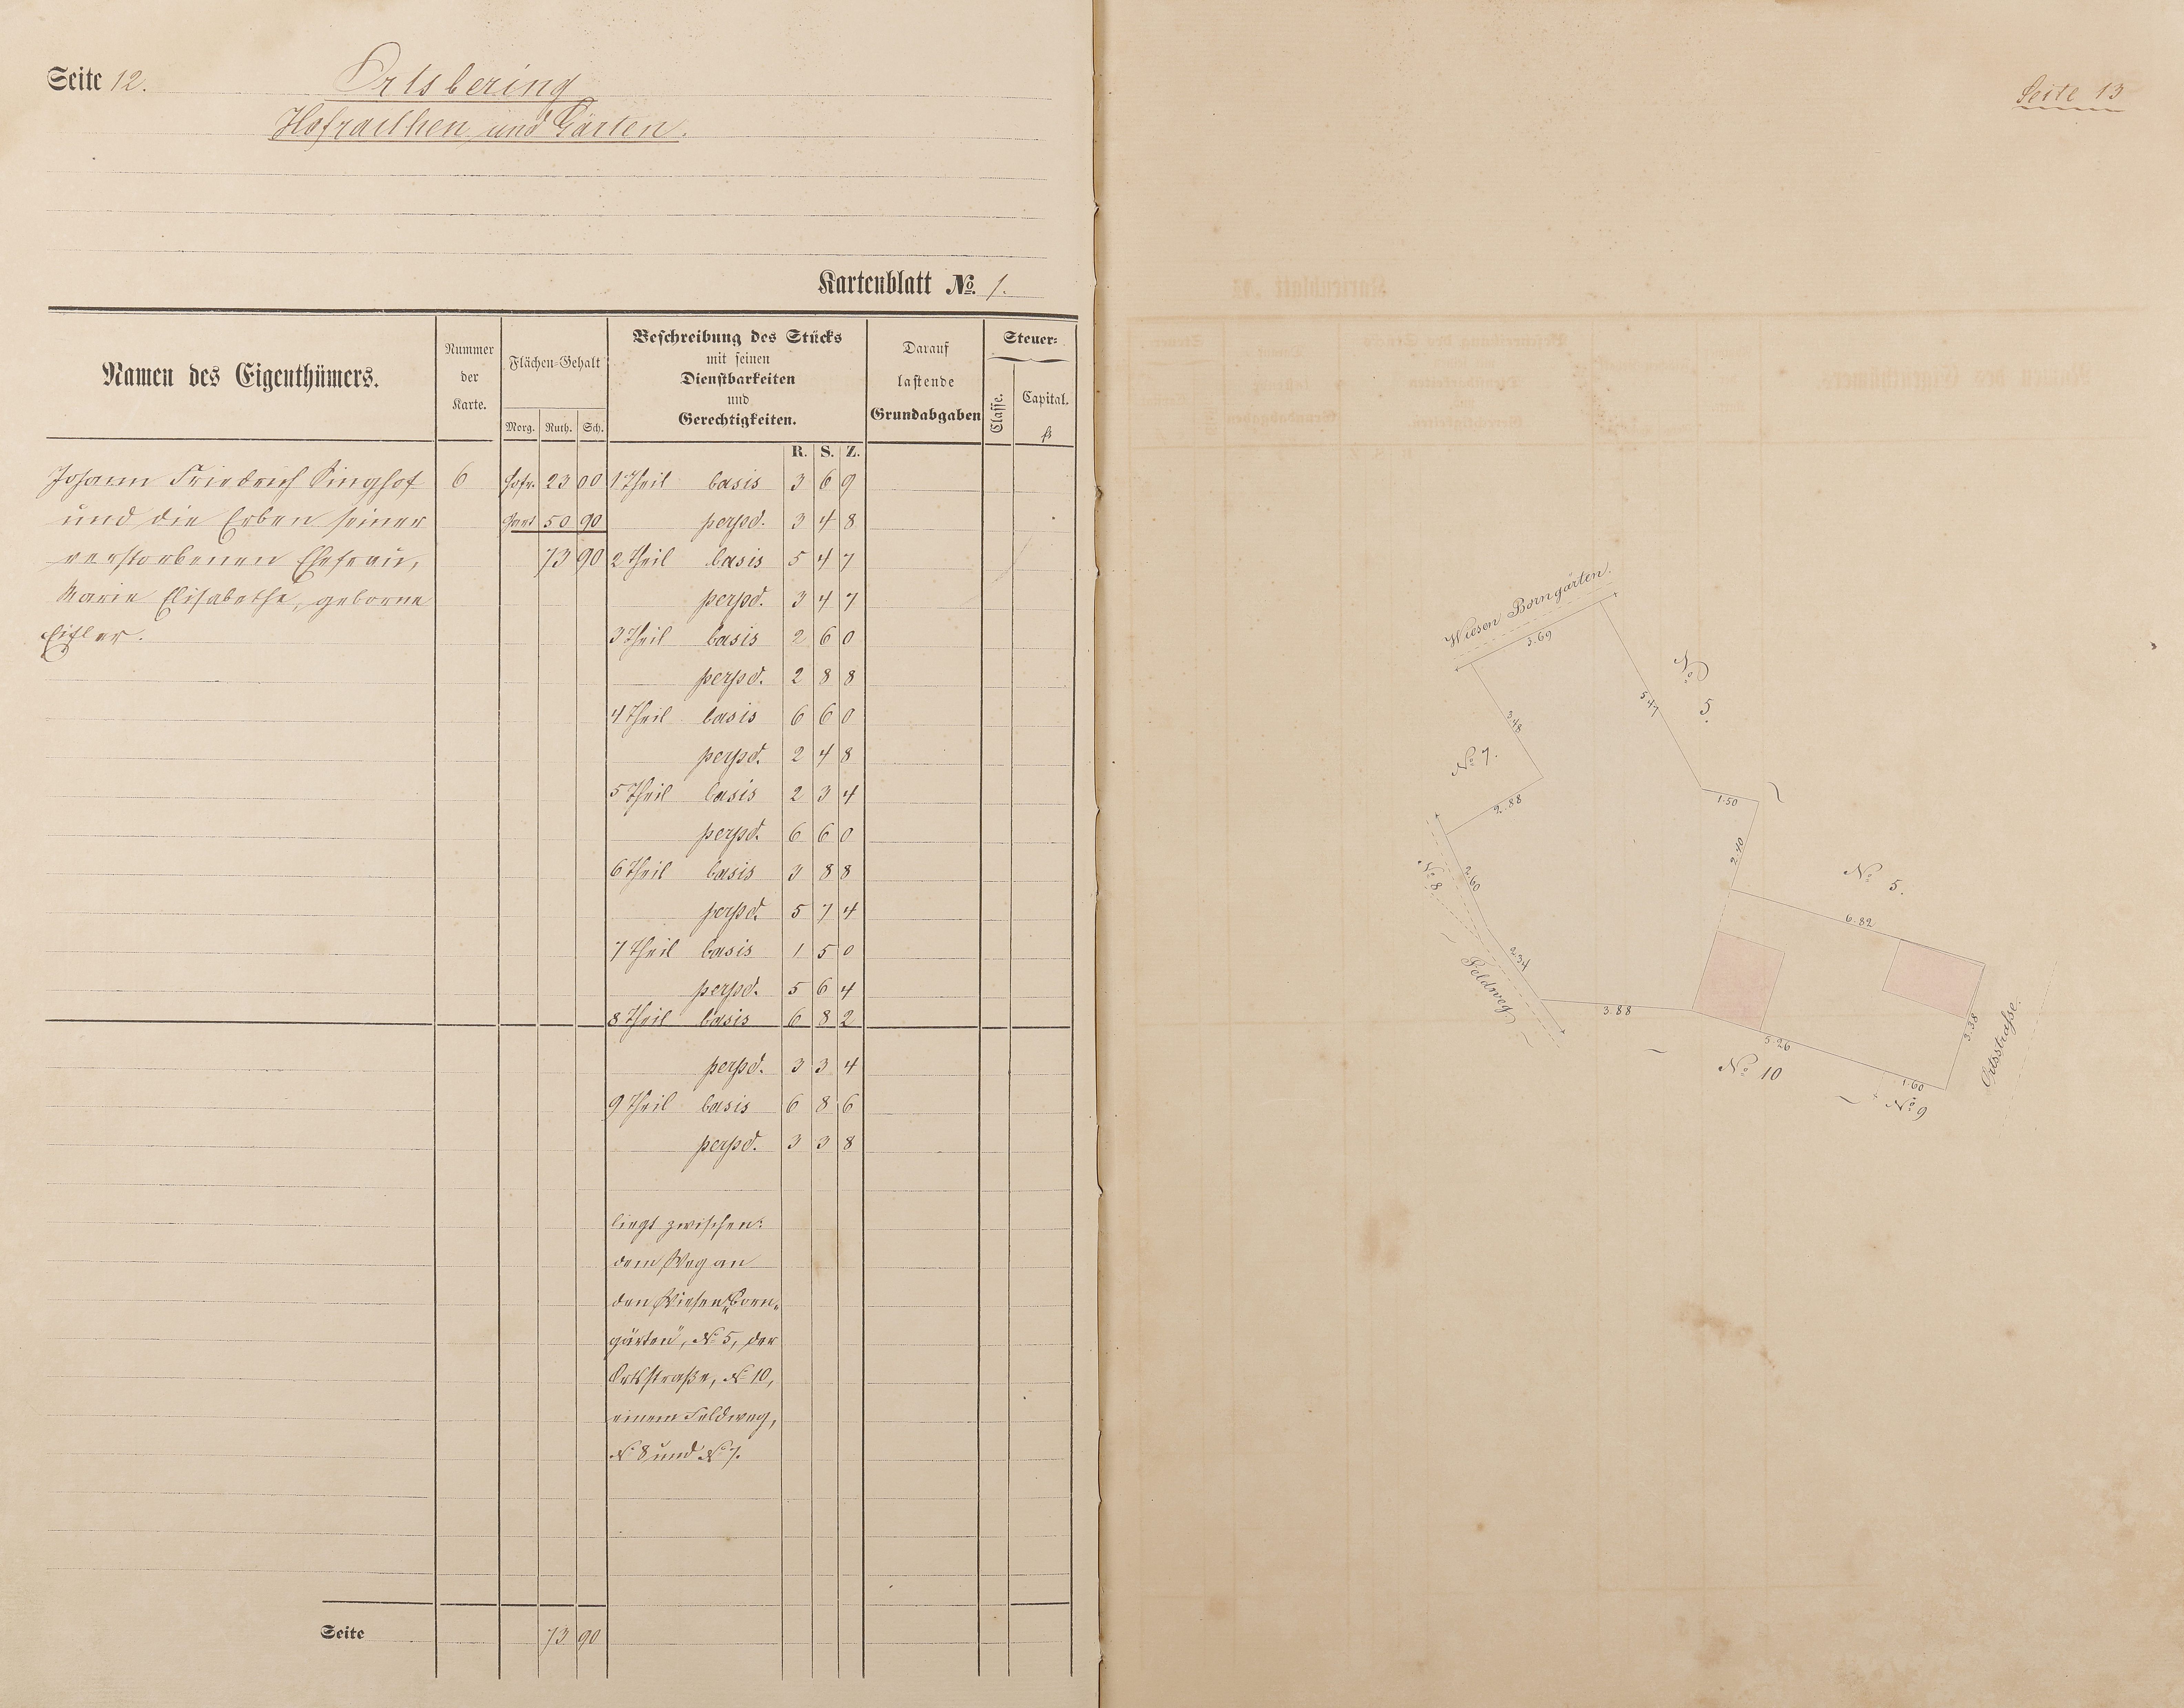 Seite 12.
Ortsbering
Hofraithen und Gärten.
Kartenblatt No. 1.
Namen des Eigenthümers.
Nummer der Karte.
Flächen-Gehalt
Morg. Ruth. Sch.
Beschreibung des Stücks
mit seinen
Dienstbarkeiten
und
Gerechtigkeiten.
Darauf
lastende
Grundabgaben
Steuer-
Classe.
Capital.
fl
R. S. Z.
Johann Friedrich Singhof
und die Erben seiner
verstorbenen Ehefrau,
Marie Elisabethe, geborne
6
Hofr. 23 00
Gart 50 90
73 90
1 Theil basis 3 6 9
perpd. 3 4 8
2 Theil basis 5 4 7
perpd. 3 4 7
3 Theil basis 2 6 0
perpd. 2 8 8
4 Theil basis 6 6 0
perpd. 2 4 8
5 Theil basis 2 3 4
perpd. 6 6 0
6 Theil basis 3 8 8
perpd. 5 7 4
7 Theil basis 1 5 0
perpd. 5 6 4
8 Theil basis 6 8 2
perpd. 3 3 4
9 Theil basis 6 8 6
perpd. 3 3 8
liegt zwischen:
dem Weg an
den Wiesen „Born-
gärten", No 5, der
Ortsstraße, No 10,
einem Feldweg,
No 8 und No 7.
Seite 73 90
Seite 13
Wiesen Borngärten.
3.69
No 5.
5.47
3.48
No 7.
2.88
1.50
2.40
No 8
2.60
No 5.
6.82
2.34
Feldweg
3.88
5.26
3.38
Ortsstraße.
No 10
1.60
No 9